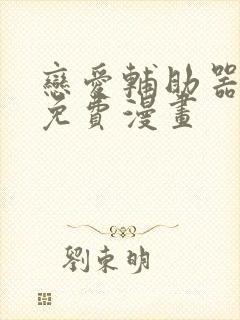 戀愛輔助器
免費漫畫
劉東明